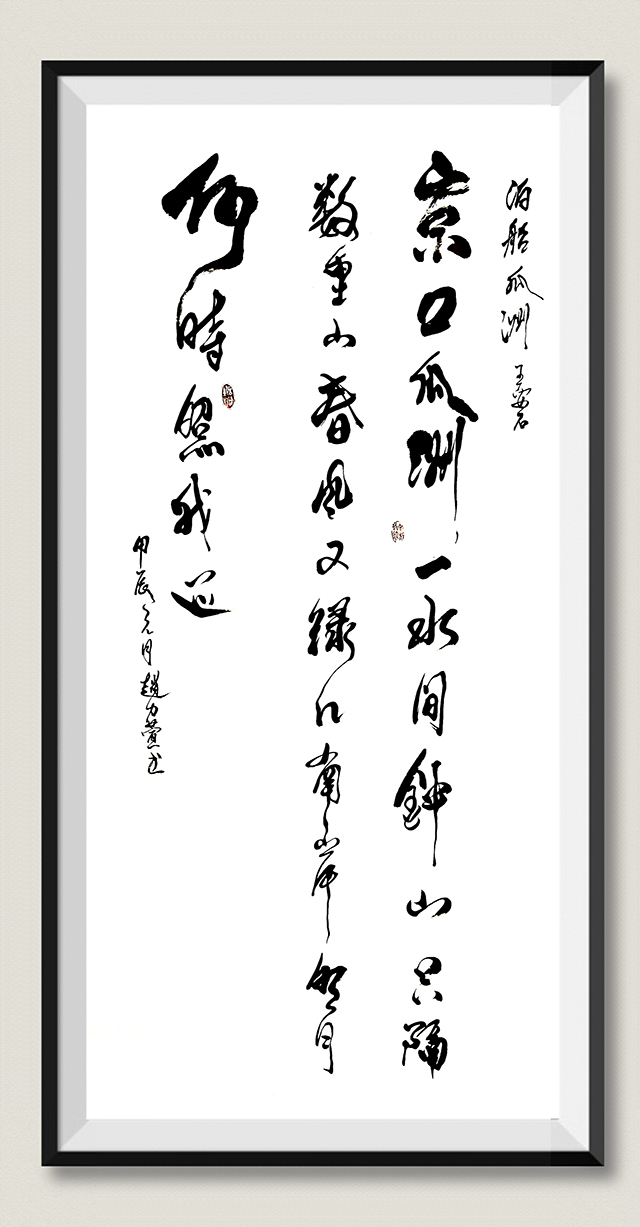 泊船瓜洲 王安石
京口瓜洲一水間鍾山只隔
数重山春風又綠江南岸明月
何時照我還
甲辰元月趙力萱书